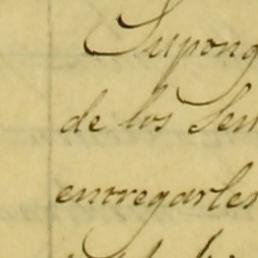 Supong
de los Sen
entregarles